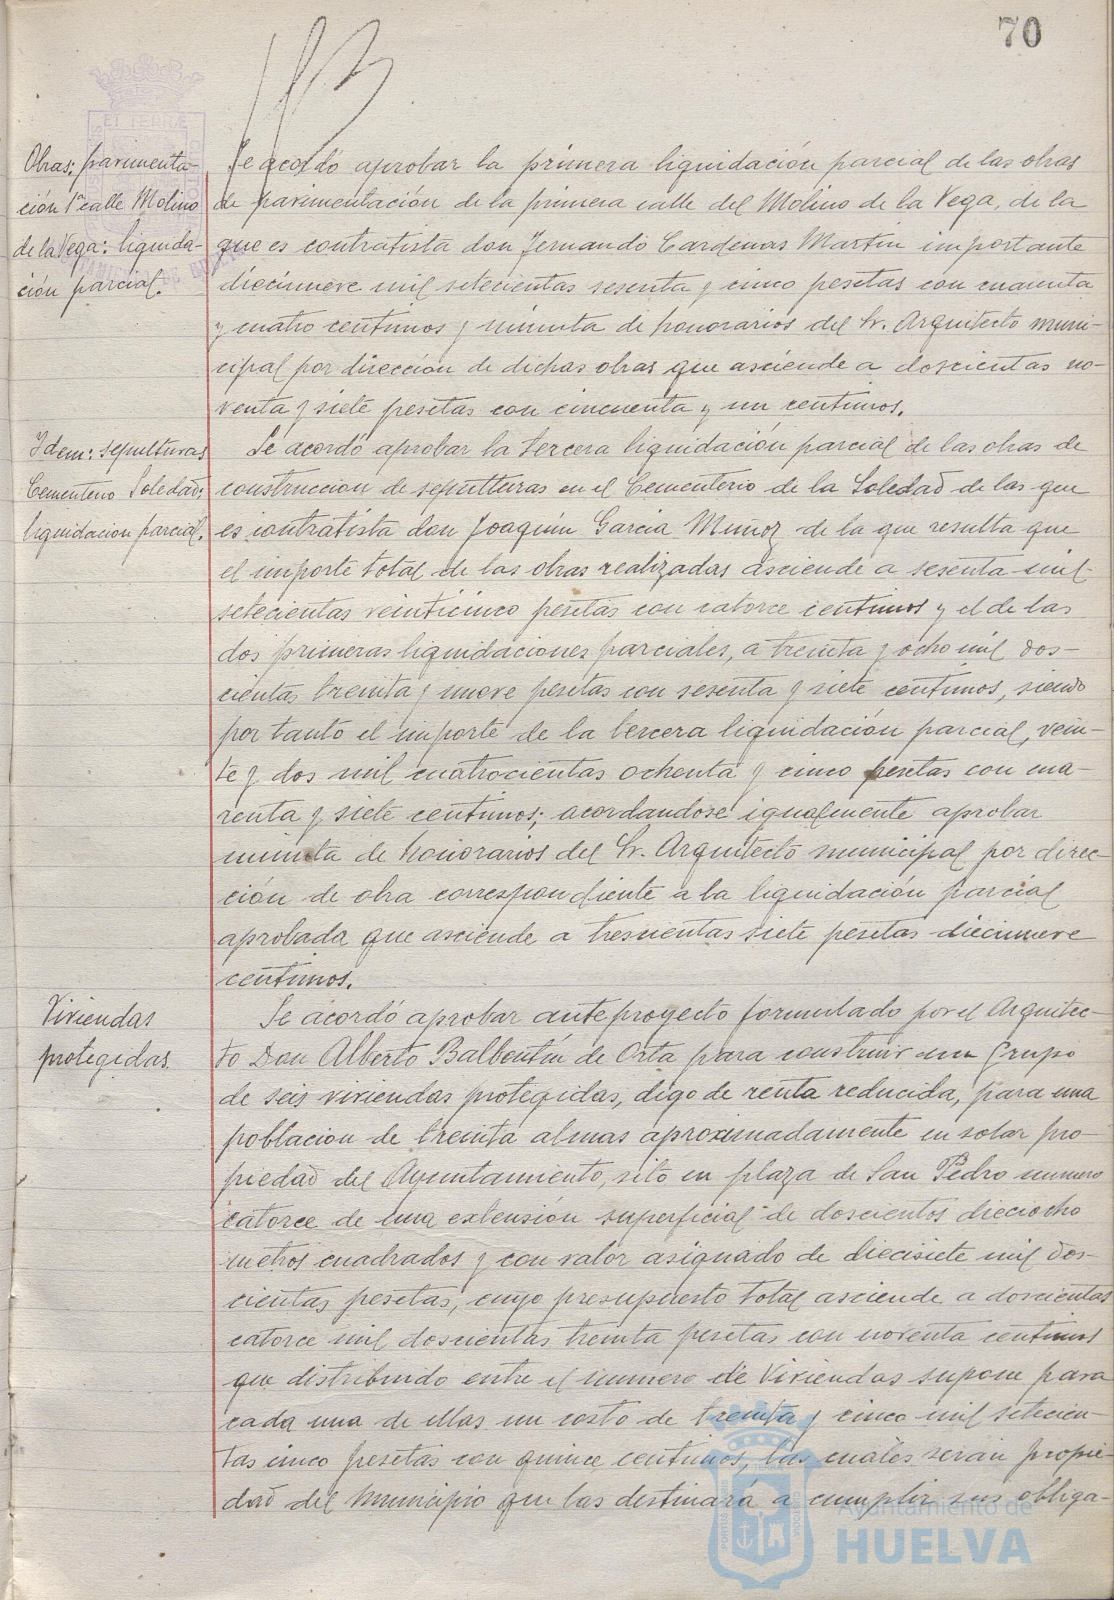 70
Obras: pavimenta-
ción 1ª calle Molino
de la Vega: liquida-
ción parcial.
Se acordó aprobar la primera liquidación parcial de las obras
de pavimentación de la primera calle del Molino de la Vega, de la
que es contratista don Fernando Cardenas Martin importante
diecinueve mil setecientas sesenta y cinco pesetas con cuarenta
y cuatro centimos y minuta de honorarios del Sr. Arquitecto muni-
cipal por dirección de dichas obras que asciende a doscientas no-
venta y siete pesetas con cincuenta y un centimos.
Idem: sepulturas
Cementerio Soledad:
liquidacion parcial.
Se acordó aprobar la tercera liquidación parcial de las obras de
construccion de sepulturas en el Cementerio de la Soledad de las que
es contratista don Joaquin Garcia Muñoz de la que resulta que
el importe total de las obras realizadas asciende a sesenta mil
setecientas veinticinco pesetas con catorce centimos y el de las
dos primeras liquidaciones parciales, a treinta y ocho mil dos-
cientas treinta y nueve pesetas con sesenta y siete centimos, siendo
por tanto el importe de la tercera liquidación parcial, vein-
te y dos mil cuatrocientas ochenta y cinco pesetas con cua-
renta y siete centimos; acordandose igualmente aprobar
minuta de honorarios del Sr. Arquitecto municipal por direc-
ción de obra correspondiente a la liquidación parcial
aprobada que asciende a trescientas siete pesetas diecinueve
centimos.
Viviendas
protegidas.
Se acordó aprobar anteproyecto formulado por el Arquitec-
to Don Alberto Balbontín de Orta para construir un Grupo
de seis viviendas protegidas, digo de renta reducida, para una
poblacion de treinta almas aproximadamente en solar pro-
piedad del Ayuntamiento, sito en plaza de San Pedro numero
catorce de una extensión superficial de doscientos dieciocho
metros cuadrados y con valor asignado de diecisiete mil dos-
cientas pesetas, cuyo presupuesto total asciende a doscientas
catorce mil doscientas treinta pesetas con noventa centimos
que distribuido entre el numero de Viviendas supone para
cada una de ellas un costo de treinta y cinco mil setecien-
tas cinco pesetas con quince centimos, las cuales serán propie-
dad del Municipio que las destinará a cumplir sus obliga-
Ayuntamiento de
HUELVA